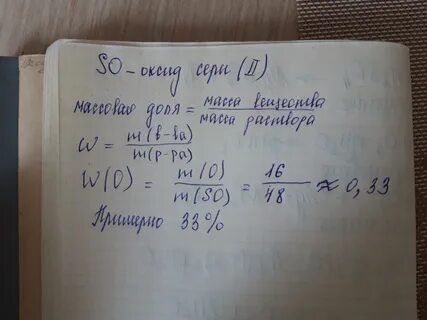 SO - оксид серы (II)
массовая доля = масса вещества / масса раствора
ω = m(в-ва) / m(р-ра)
W(O) = m(O) / m(SO) = 16 / 48 ≈ 0,33
Примерно 33%